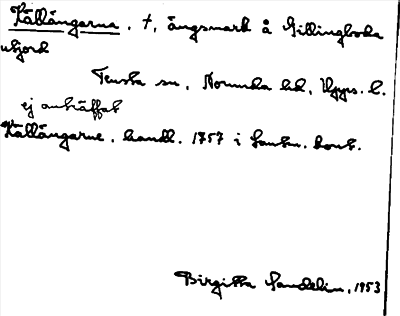 Källängarna, †, ängsmark å Gillingboda
utjord
Tensta sn, Norunda hd, Upps. l.
ej anträffat
Källängarne, handl. 1757 i Lantm. kont.
Birgitta Sandelin, 1953